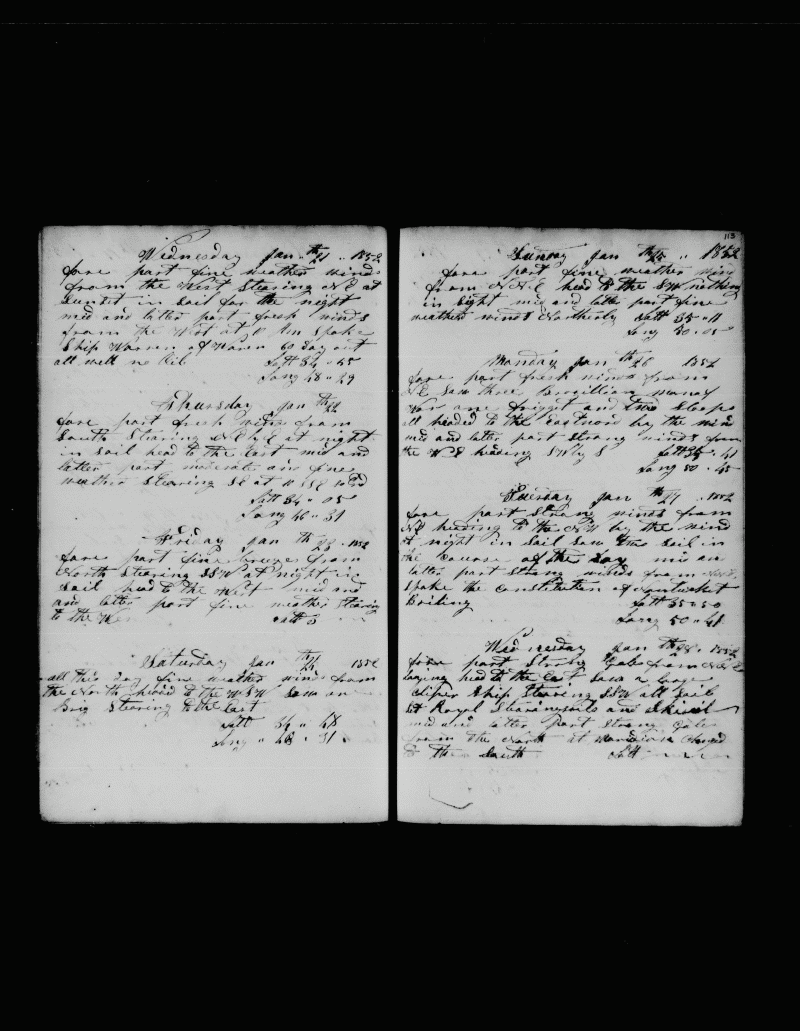 Wednesday Jan th 21 " 1852
fore part fine weather winds
from the West Stearing NE at
Sunset in Sail for the night
mid and latter part fresh winds
from the West at Am Spoke
Ship Warren of Waren 69 day out
all well no Oil Latt 34 " 45
Long 48 " 29
Thursday Jan th 22
fore part fresh winds from
South Stearing at night
in Sail head to the East mid and
latter part moderate and fine
weather Stearing SE at
Latt 34 " 05
Long 46 " 31
Friday Jan th 23 " 1852
fore part fine breezes from
North Stearing SSW at night in
Sail head to the West mid and
and latter part fine weather Stearing
to the W Latt
Saturday Jan th 24 1852
all this day fine weather wind from
the North head to the WSW Saw one
Brig Stearing to the East
Latt 34 " 48
Long " 48 " 31
113
Sunday Jan th 25 " 1852
fore part fine weather wind
from NNE head to the SW nothing
in Sight mid and latter part fine
weather winds Northerly Latt 35 " 11
Long 50 " 05
Monday Jan th 26 1852
fore part fresh winds from
NE Saw three Brazillian man of
War one frigget and two Sloops
all headed to the Eastward by the wind
mid and latter part Strong winds from
the NE heading S W by S Latt 35 " 41
Long 50 " 45
Tuesday Jan th 27 " 1852
fore part Strong winds from
NE heading to the NW by the wind
at night in Sail Saw two Sail in
the Course of the day mid and
latter part Strong winds from
Spoke the Constitution of Nantucket
Boiling Latt 35 " 50
Long 50 " 41
Wednesday Jan th 28 " 1852
fore part Strong Gale from
laying head to the East Saw a large
Cliper Ship Stearing SSW all Sail
Set Royal Stearingsails and
mid and latter part Strong Gale
from the North at Changed
to the South Latt